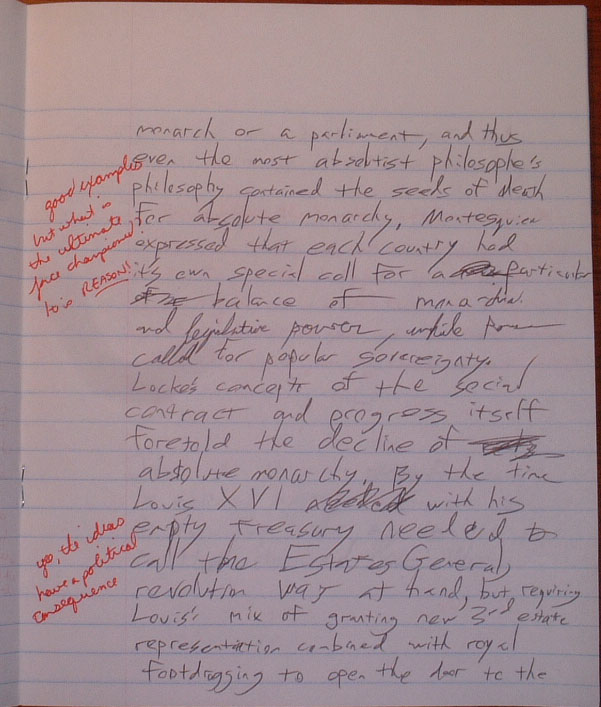 monarch or a parliment, and thus
even the most absoltist philosophe's
philosophy contained the seeds of death
for absolute monarchy, Montesquieu
expressed that each country had
it's own special call for a particular
balance of monarchial
and legislative power, while
called for popular sovereignty.
Locke's concepts of the social
contract and progress itself
foretold the decline of
absolute monarchy. By the time
Louis XVI with his
empty treasury needed to
call the Estates General,
revolution way at hand, but requiring
Louis's mix of granting new 3rd estate
representation combined with royal
footdragging to open the door to the
good examples
but what is
the ultimate
force championed?
REASON!
yes, the ideas
have a political
consequence